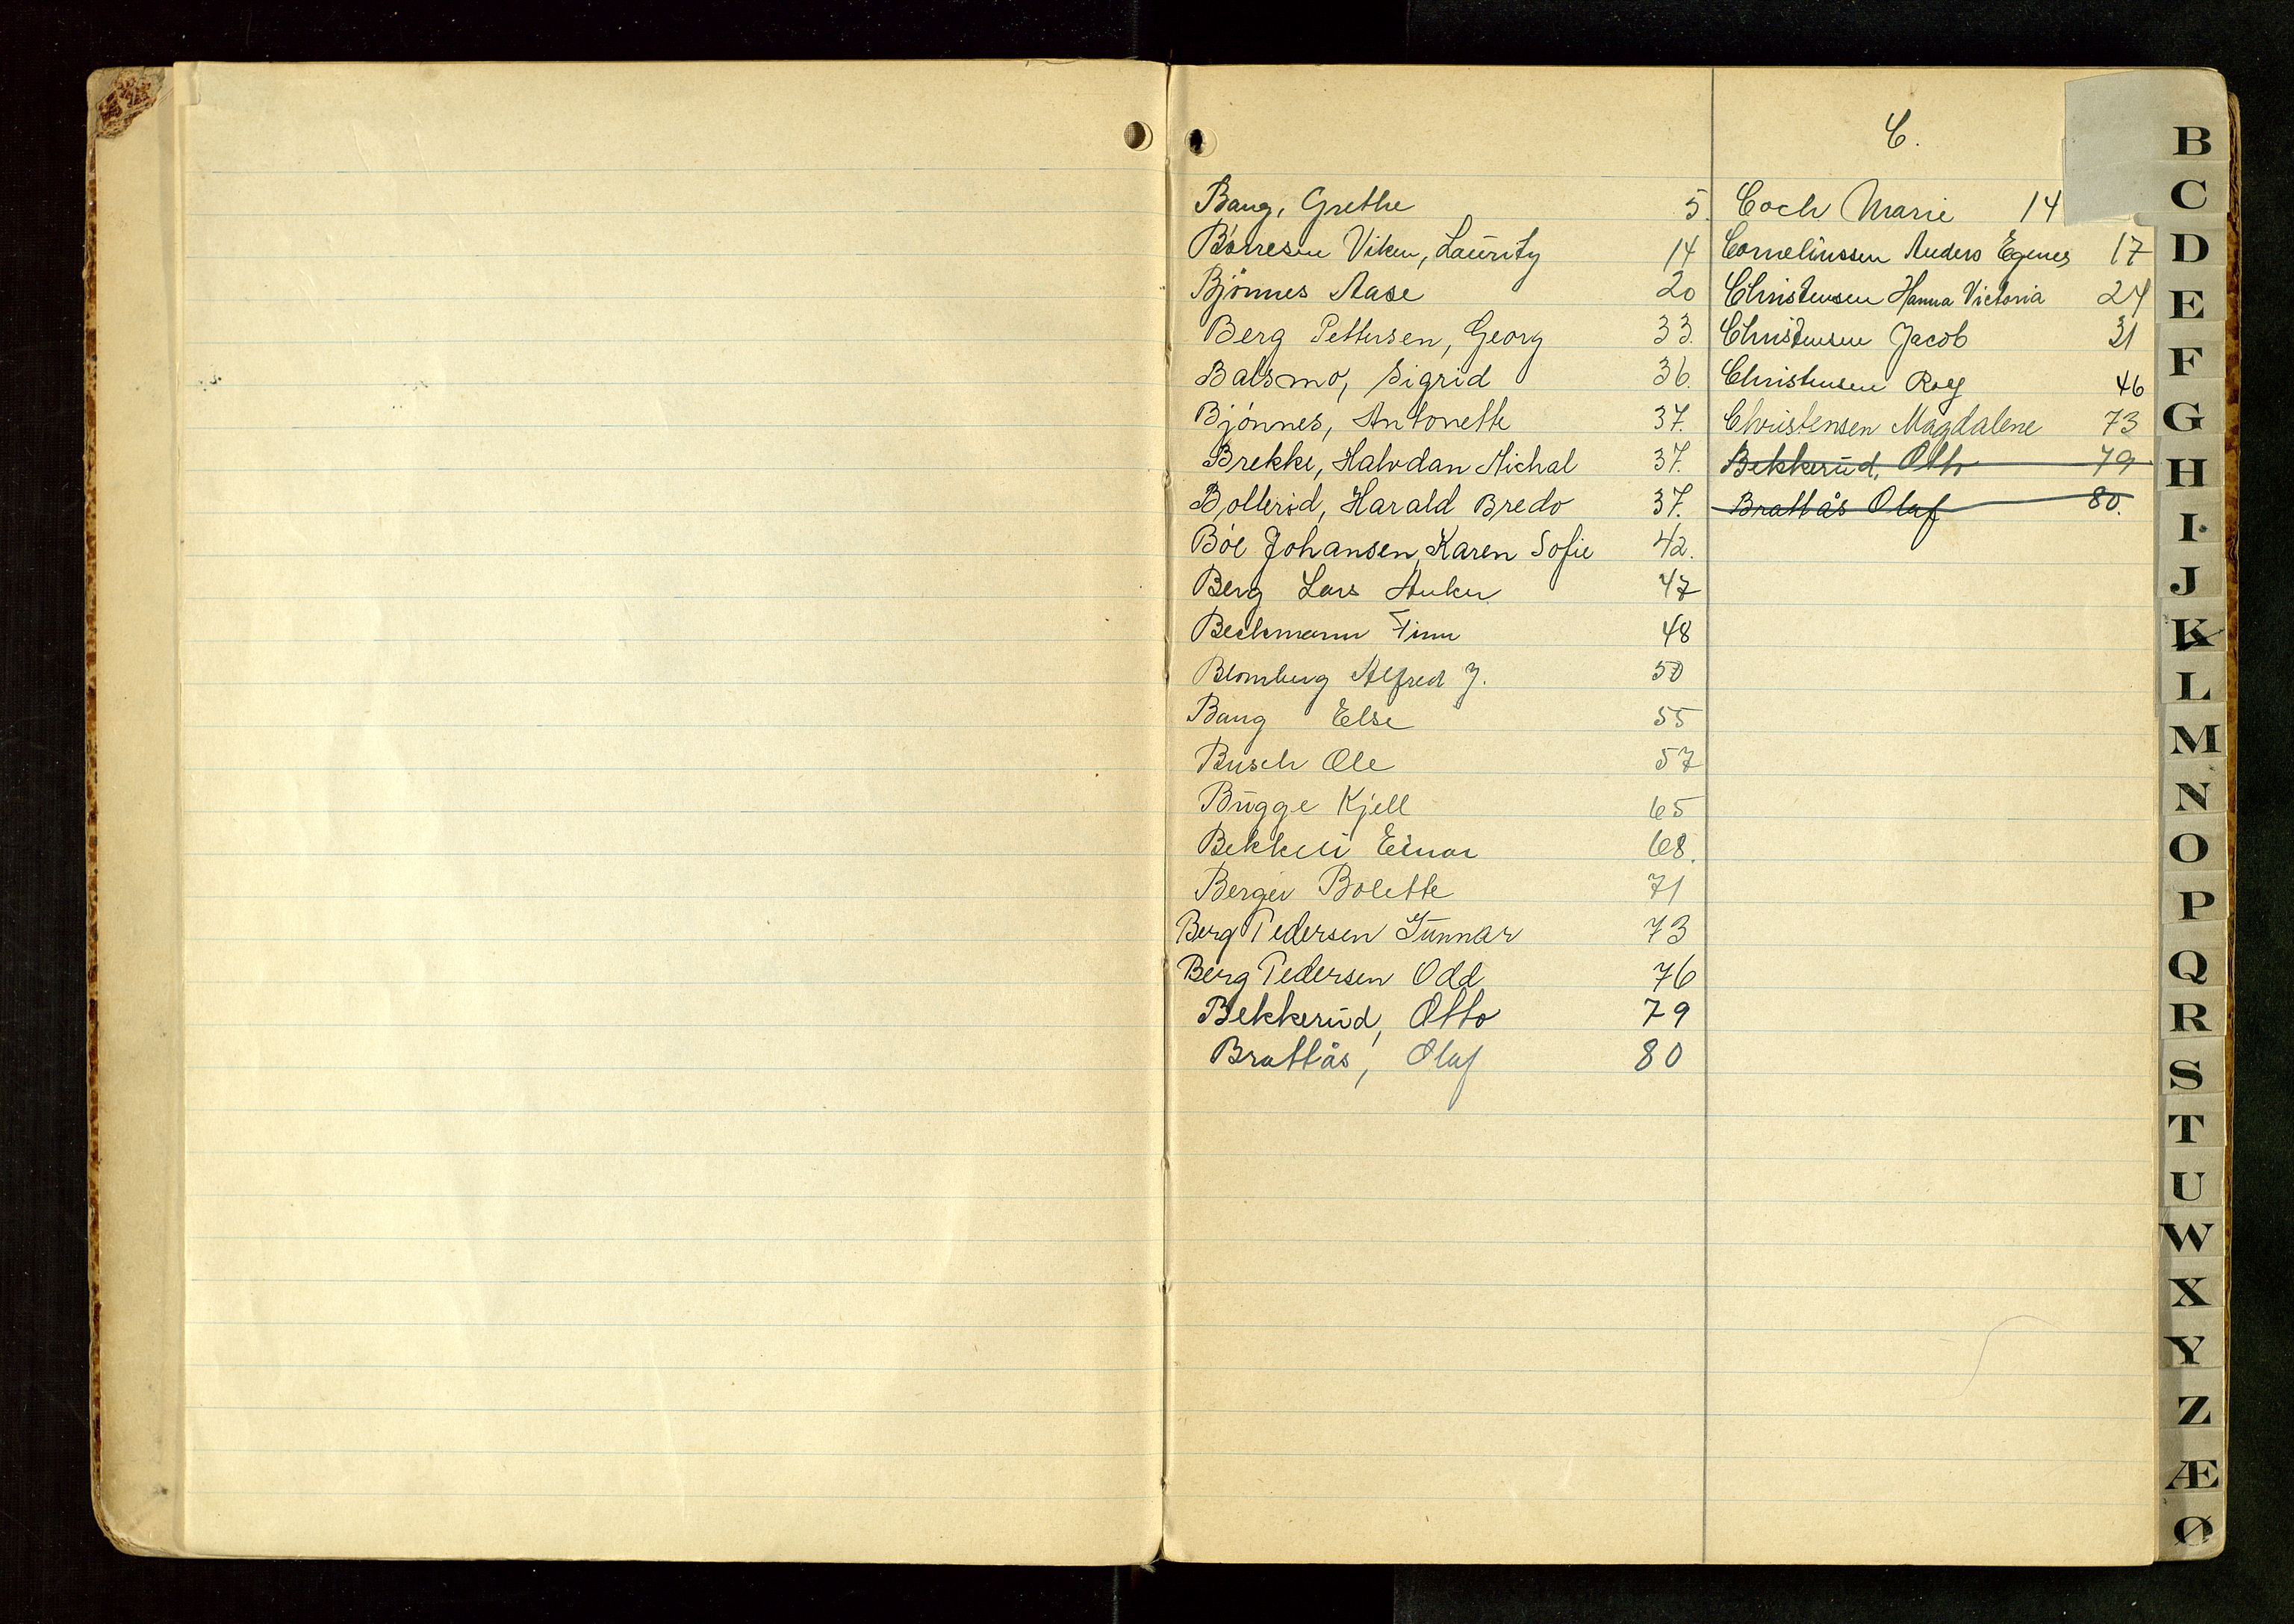 Bang, Grethe 5.
Børresen Viken, Lauritz 14
Bjønnes Aase 20
Berg Pettersen, Georg 33.
Balsmo, Sigrid 36.
Bjønnes, Antonette 37.
Brekke, Halvdan Michal 37.
Harald Bredo 37.
Bøe Johansen, Karen Sofie 42.
Berg Lars Anker 47
Beckmann Finn 48
Blomberg Alfred J. 50
Bang Else 55
Busch Ole 57
Bugge Kjell 65
Einar 68.
Berger Bolette 71
Berg Pedersen Gunnar 73
Berg Pedersen Odd 76
Bekkerud, Otto 79
Brattås, Olaf 80
C.
Coch Marie 14
Corneliussen Anders Egenes 17
Christensen Hanna Victoria 24
Christensen Jacob 31
Christensen Rolf 46
Christensen Magdalene 73
Bekkerud, Otto 79
Brattås Olaf 80.
B
C
D
E
F
G
H
I
J
K
L
M
N
O
P
Q
R
S
T
U
W
X
Y
Z
Æ
Ø